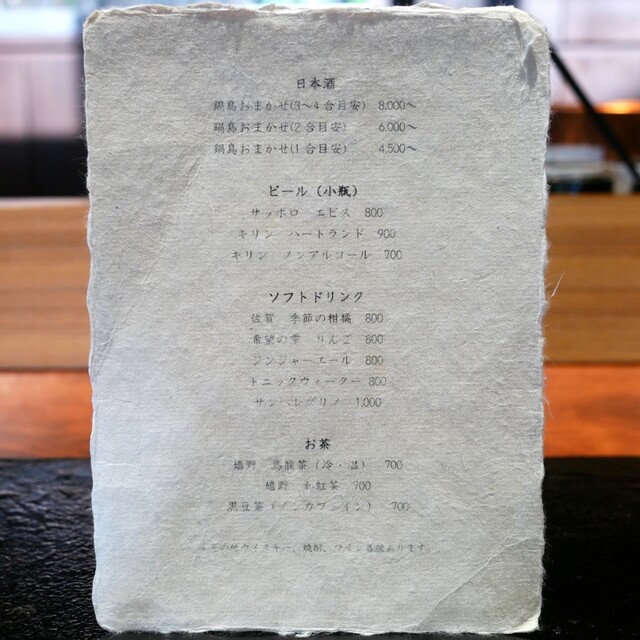 日本酒
鍋島おまかせ(3〜4合目安) 8,000〜
鍋島おまかせ(2合目安) 6,000〜
鍋島おまかせ(1合目安) 4,500〜
ビール(小瓶)
サッポロ ヱビス 800
キリン ハートランド 900
キリン ノンアルコール 700
ソフトドリンク
佐賀 季節の柑橘 800
希望の雫 りんご 800
ジンジャーエール 800
トニックウォーター 800
サンペレグリノ 1,000
お茶
嬉野 烏龍茶(冷・温) 700
嬉野 和紅茶 700
黒豆茶(ノンカフェイン) 700
その他ウイスキー、焼酎、ワイン各種あります